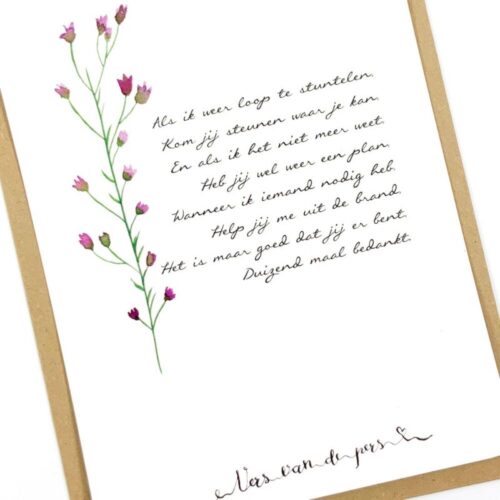 Als ik weer loop te stuntelen,
Kom jij steunen waar je kan.
En als ik het niet meer weet.
Heb jij wel weer een plan.
Wanneer ik iemand nodig heb,
Help jij me uit de brand.
Het is maar goed dat jij er bent.
Duizend maal bedankt.
Vers van de pers